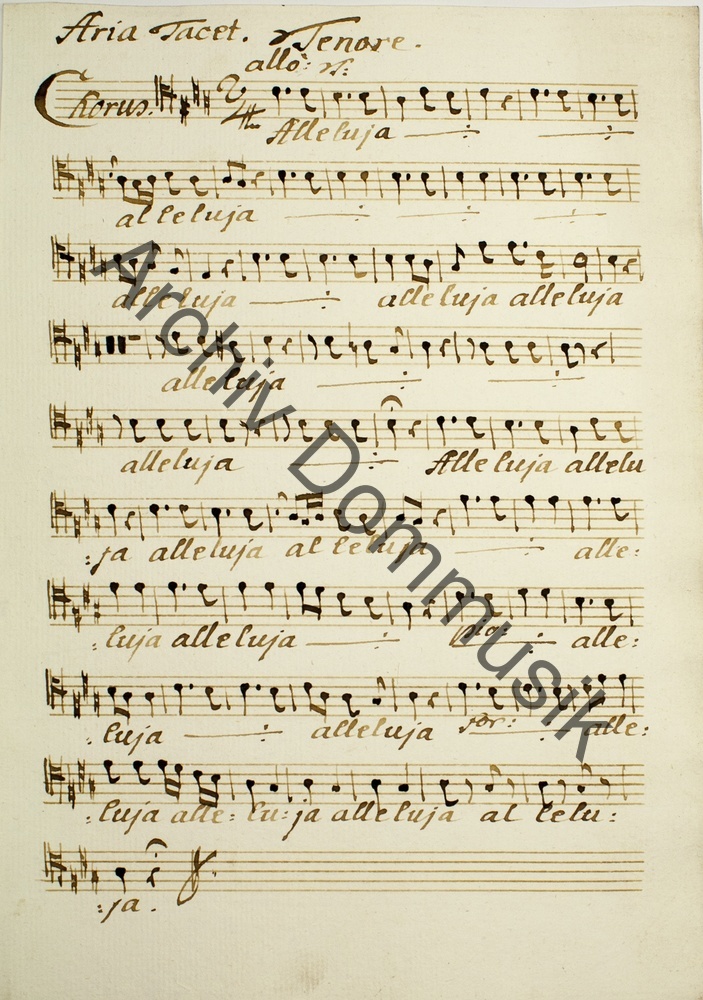 Aria Tacet. Tenore.
allo:
Chorus.
Alleluja
alleluja
alleluja alleluja alleluja
alleluja
alleluja Alleluja allelu
:ja alleluja alleluja alle:
:luja alleluja pia: alle:
:luja alleluja for: alle:
:luja alle: lu:ja alleluja al lelu:
:ja.
Archiv Dommusik